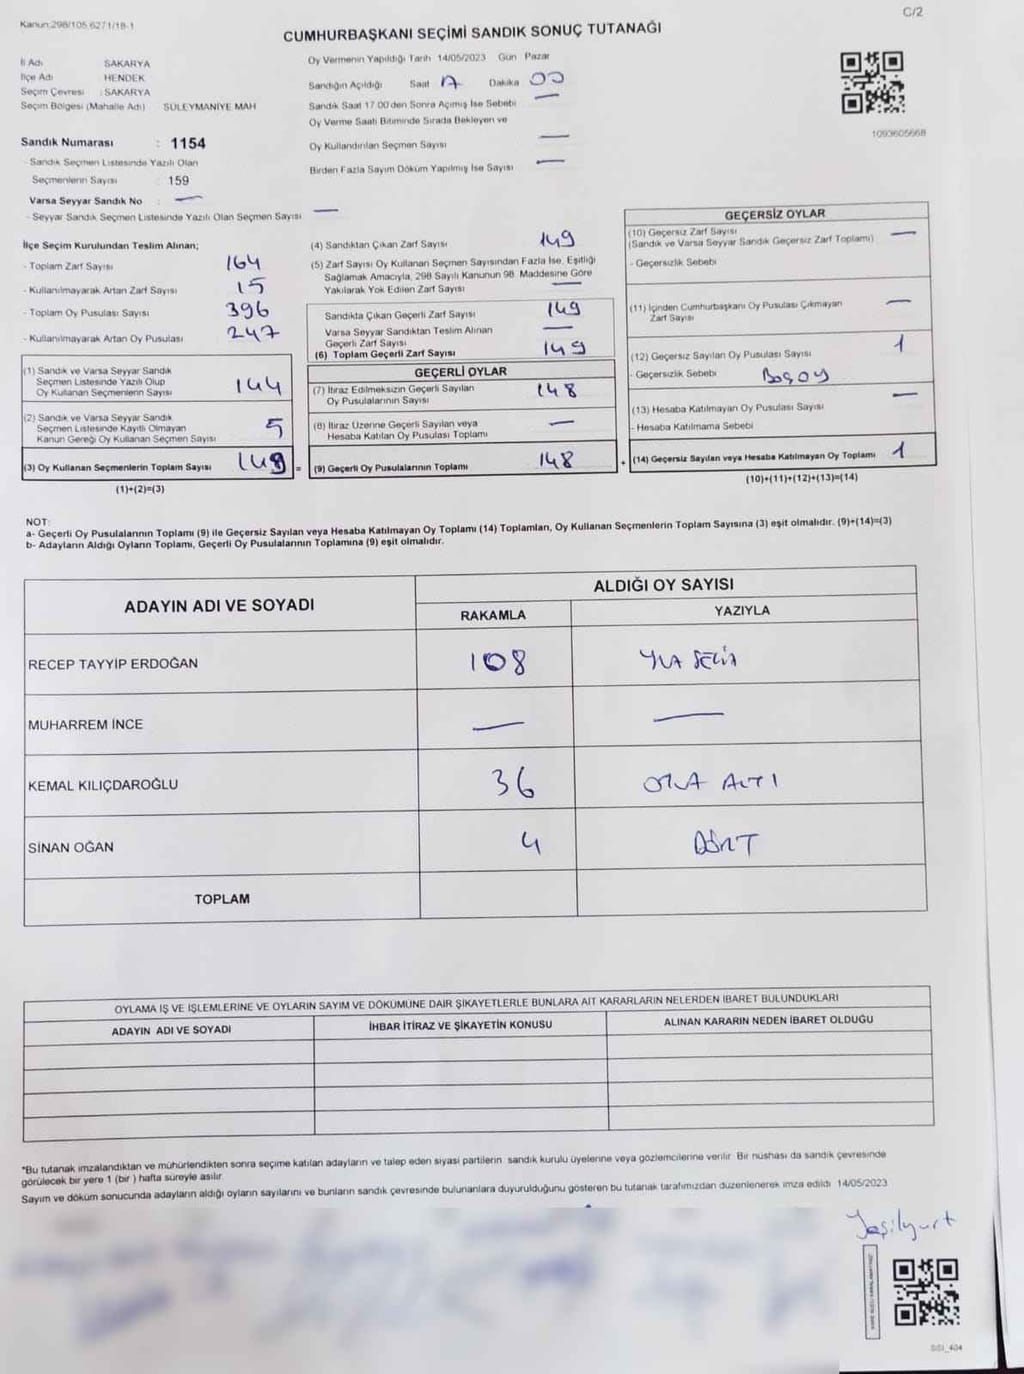 Kanun:298/105.6271/18-1
C/2
CUMHURBAŞKANI SEÇİMİ SANDIK SONUÇ TUTANAĞI
İl Adı SAKARYA
İlçe Adı HENDEK
Seçim Çevresi : SAKARYA
Seçim Bölgesi (Mahalle Adı) SÜLEYMANİYE MAH
Oy Vermenin Yapıldığı Tarih 14/05/2023 Gün Pazar
Sandığın Açıldığı Saat 17 Dakika 00
Sandık Saat 17 00'den Sonra Açımış İse Sebebi —
Oy Verme Saati Bitiminde Sırada Bekleyen ve
Oy Kullandırılan Seçmen Sayısı —
Birden Fazla Sayım Döküm Yapılmış İse Sayısı —
1093605668
Sandık Numarası : 1154
- Sandık Seçmen Listesinde Yazılı Olan
Seçmenlerin Sayısı : 159
Varsa Seyyar Sandık No : —
- Seyyar Sandık Seçmen Listesinde Yazılı Olan Seçmen Sayısı —
İlçe Seçim Kurulundan Teslim Alınan;
- Toplam Zarf Sayısı 164
- Kullanılmayarak Artan Zarf Sayısı 15
- Toplam Oy Pusulası Sayısı 396
- Kullanılmayarak Artan Oy Pusulası 247
(1) Sandık ve Varsa Seyyar Sandık
Seçmen Listesinde Yazılı Olup
Oy Kullanan Seçmenlerin Sayısı 144
(2) Sandık ve Varsa Seyyar Sandık
Seçmen Listesinde Kayıtlı Olmayan
Kanun Gereği Oy Kullanan Seçmen Sayısı 5
(3) Oy Kullanan Seçmenlerin Toplam Sayısı 149 =
(1)+(2)=(3)
(4) Sandıktan Çıkan Zarf Sayısı 149
(5) Zarf Sayısı Oy Kullanan Seçmen Sayısından Fazla İse, Eşitliği
Sağlamak Amacıyla, 298 Sayılı Kanunun 98. Maddesine Göre
Yakılarak Yok Edilen Zarf Sayısı —
Sandıkta Çıkan Geçerli Zarf Sayısı 149
Varsa Seyyar Sandıktan Teslim Alınan
Geçerli Zarf Sayısı —
(6) Toplam Geçerli Zarf Sayısı 149
GEÇERLİ OYLAR
(7) İtiraz Edilmeksizin Geçerli Sayılan
Oy Pusulalarının Sayısı 148
(8) İtiraz Üzerine Geçerli Sayılan veya
Hesaba Katılan Oy Pusulası Toplamı —
(9) Geçerli Oy Pusulalarının Toplamı 148 +
GEÇERSİZ OYLAR
(10) Geçersiz Zarf Sayısı —
(Sandık ve Varsa Seyyar Sandık Geçersiz Zarf Toplamı)
- Geçersizlik Sebebi
(11) İçinden Cumhurbaşkanı Oy Pusulası Çıkmayan —
Zarf Sayısı
(12) Geçersiz Sayılan Oy Pusulası Sayısı 1
- Geçersizlik Sebebi BoşOY
(13) Hesaba Katılmayan Oy Pusulası Sayısı —
- Hesaba Katılmama Sebebi
(14) Geçersiz Sayılan veya Hesaba Katılmayan Oy Toplamı 1
(10)+(11)+(12)+(13)=(14)
NOT:
a- Geçerli Oy Pusulalarının Toplamı (9) ile Geçersiz Sayılan veya Hesaba Katılmayan Oy Toplamı (14) Toplamları, Oy Kullanan Seçmenlerin Toplam Sayısına (3) eşit olmalıdır. (9)+(14)=(3)
b- Adayların Aldığı Oyların Toplamı, Geçerli Oy Pusulalarının Toplamına (9) eşit olmalıdır.
ADAYIN ADI VE SOYADI
ALDIĞI OY SAYISI
RAKAMLA YAZIYLA
RECEP TAYYİP ERDOĞAN 108
MUHARREM İNCE — —
KEMAL KILIÇDAROĞLU 36 OTUZ ALTI
SİNAN OĞAN 4 DÖRT
TOPLAM
OYLAMA İŞ VE İŞLEMLERİNE VE OYLARIN SAYIM VE DÖKÜMÜNE DAİR ŞİKAYETLERLE BUNLARA AİT KARARLARIN NELERDEN İBARET BULUNDUKLARI
ADAYIN ADI VE SOYADI İHBAR İTİRAZ VE ŞİKAYETİN KONUSU ALINAN KARARIN NEDEN İBARET OLDUĞU
*Bu tutanak imzalandıktan ve mühürlendikten sonra seçime katılan adayların ve talep eden siyasi partilerin sandık kurulu üyelerine veya gözlemcilerine verilir. Bir nüshası da sandık çevresinde
görülecek bir yere 1 (bir ) hafta süreyle asılır.
Sayım ve döküm sonucunda adayların aldığı oyların sayılarını ve bunların sandık çevresinde bulunanlara duyurulduğunu gösteren bu tutanak tarafımızdan düzenlenerek imza edildi 14/05/2023
Yeşilyurt
SSI_404